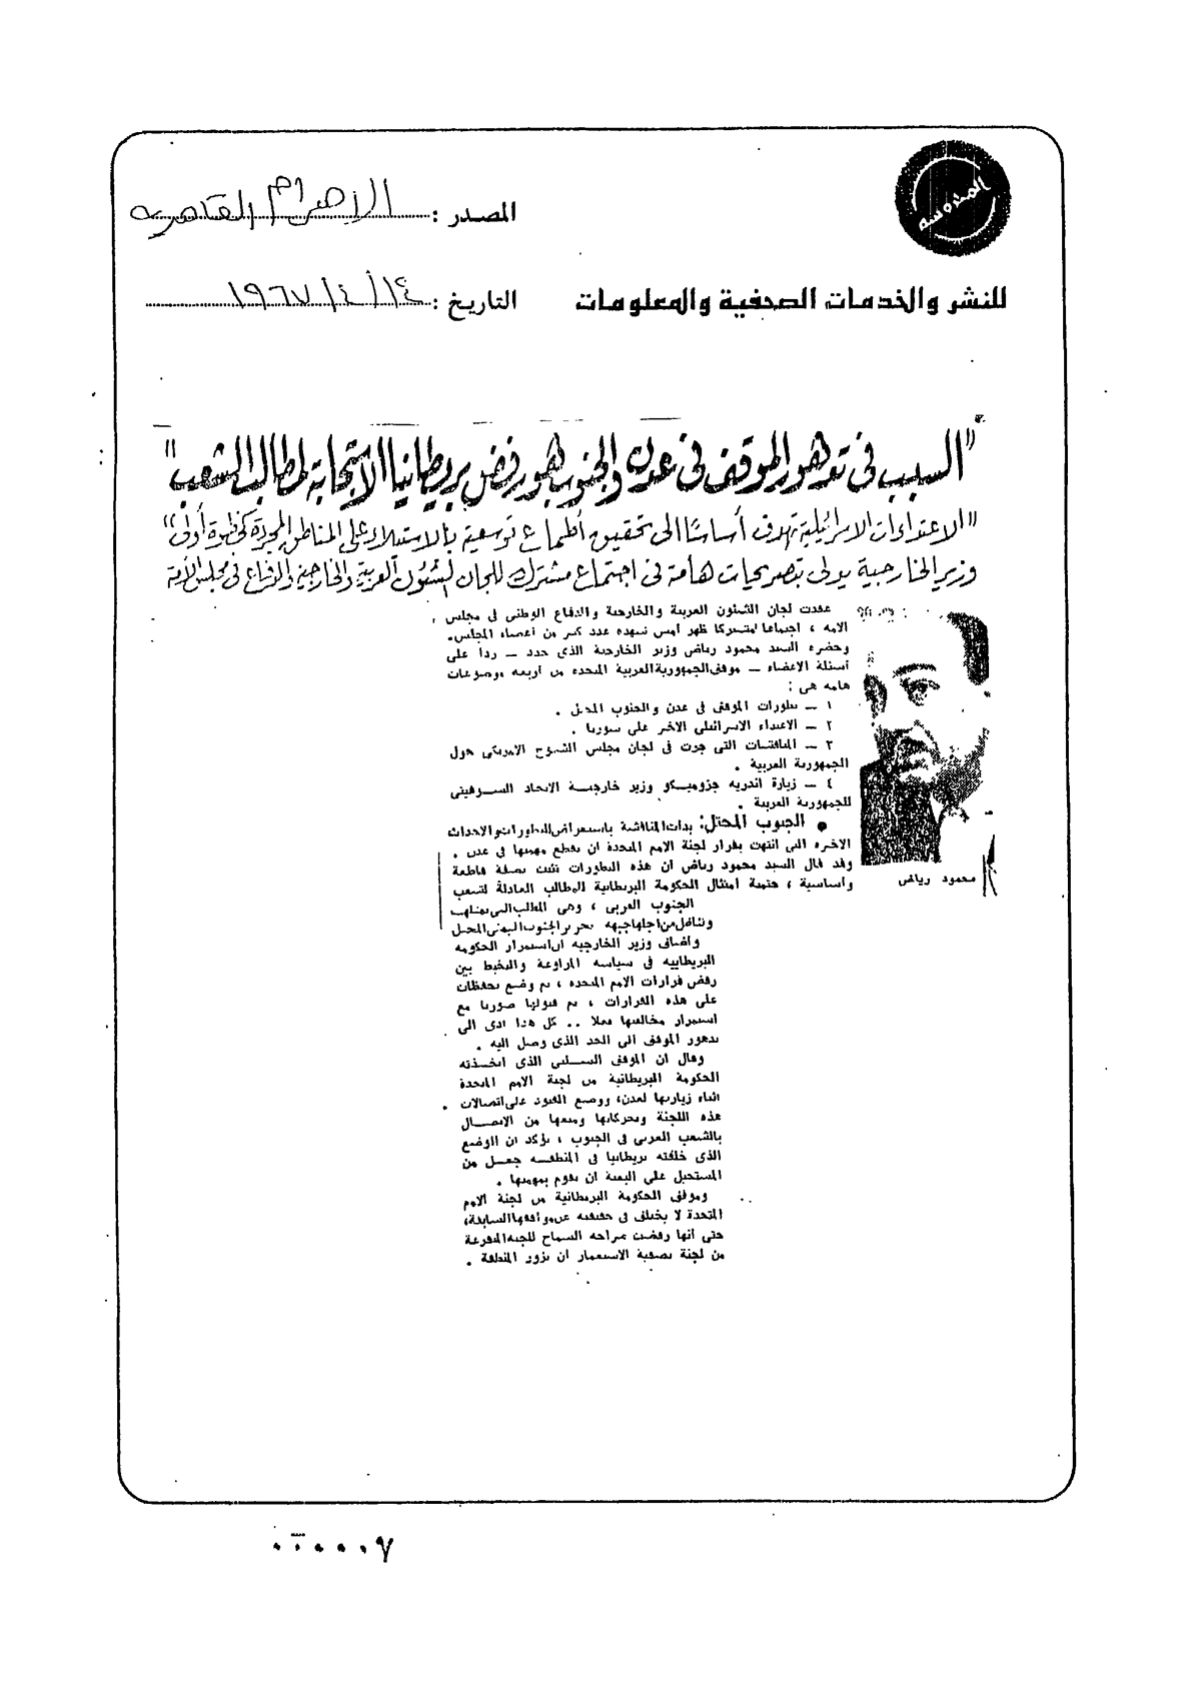 المحروسة
المصدر : الاهرام القاهرية
للنشر والخدمات الصحفية والمعلومات
التاريخ : ١٤/٤/١٩٦٧
"السبب فى تدهور الموقف فى عدن والجنوب هو رفض بريطانيا الاستجابة لمطالب الشعب"
"الاعتداءات الاسرائيلية تهدف أساسًا الى تحقيق أطماع توسعية بالاستيلاء على المناطق المجردة كخطوة أولى"
وزير الخارجية يدلى بتصريحات هامة فى اجتماع مشترك للجان الشئون العربية والخارجية والدفاع فى مجلس الأمة
عقدت لجان الشئون العربية والخارجية والدفاع الوطنى فى مجلس
الامة ، اجتماعا مشتركا ظهر أمس شهده عدد كبير من أعضاء المجلس .
وحضره السيد محمود رياض وزير الخارجية الذى حدد — ردا على
أسئلة الاعضاء — موقف الجمهورية العربية المتحدة من أربعة موضوعات
هامة هى :
١ — تطورات الموقف فى عدن والجنوب المحتل .
٢ — الاعتداء الاسرائيلى الاخير على سوريا .
٣ — المناقشات التى جرت فى لجان مجلس الشيوخ الامريكى حول
الجمهورية العربية .
٤ — زيارة اندريه جروميكو وزير خارجية الاتحاد السوفيتى
للجمهورية العربية .
● الجنوب المحتل : بدأت المناقشة باستعراض التطورات والاحداث
الاخيرة التى انتهت بقرار لجنة الامم المتحدة ان تقطع مهمتها فى عدن .
وقد قال السيد محمود رياض ان هذه التطورات تثبت بصفة قاطعة
وأساسية ، حتمية امتثال الحكومة البريطانية للمطالب العادلة لشعب
محمود رياض
الجنوب العربى ، وهى المطالب التى
وتناضل من اجلها جبهة تحرير الجنوب اليمنى المحتل
وأضاف وزير الخارجية ان استمرار الحكومة
البريطانية فى سياسة المراوغة والتخبط بين
رفض قرارات الامم المتحدة ، ثم وضع تحفظات
على هذه القرارات ، ثم قبولها صوريا مع
استمرار مخالفتها فعلا .. كل هذا ادى الى
تدهور الموقف الى الحد الذى وصل اليه .
وقال ان الموقف السلبى الذى اتخذته
الحكومة البريطانية من لجنة الامم المتحدة
اثناء زيارتها لعدن، ووضع القيود على اتصالات
هذه اللجنة وتحركاتها ومنعها من الاتصال
بالشعب العربى فى الجنوب ، يؤكد ان الوضع
الذى خلقته بريطانيا فى المنطقة جعل من
المستحيل على البعثة ان تقوم بمهمتها .
وموقف الحكومة البريطانية من لجنة الامم
المتحدة لا يختلف فى حقيقته عن مواقفها السابقة،
حتى أنها رفضت صراحة السماح للجنة المتفرعة
من لجنة تصفية الاستعمار ان تزور المنطقة .